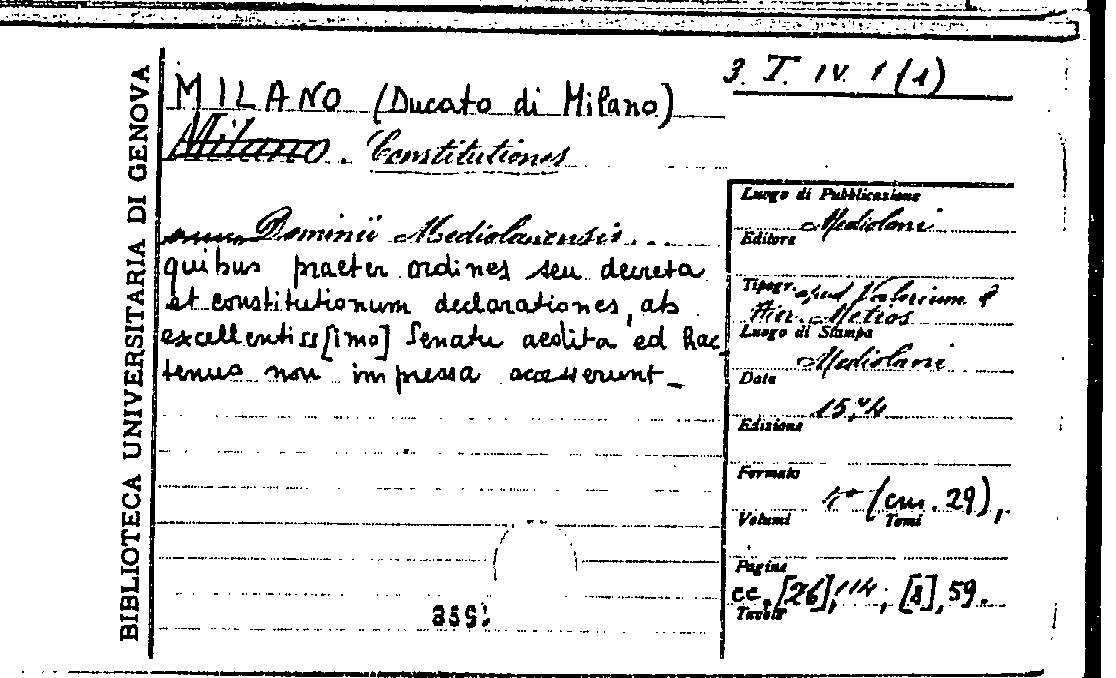 BIBLIOTECA UNIVERSITARIA DI GENOVA
3. T. IV. 1 (1)
MILANO (Ducato di Milano)
Milano. Constitutiones
Dominii Mediolanensis...
quibus praeter ordines seu decreta
et constitutionum declarationes, ab
excellentiss[imo] Senatu aedita ed hac
tenus non impressa accesserunt_
859
Luogo di Pubblicazione
Mediolani
Editore
Tipogr. apud Valerium &
Hier. Metios
Luogo di Stampa
Mediolani
Data
Edizione
Formato
(cm. 29),
Volumi Tomi
Pagine
cc. [26], 114, [8], 59.
Tavole